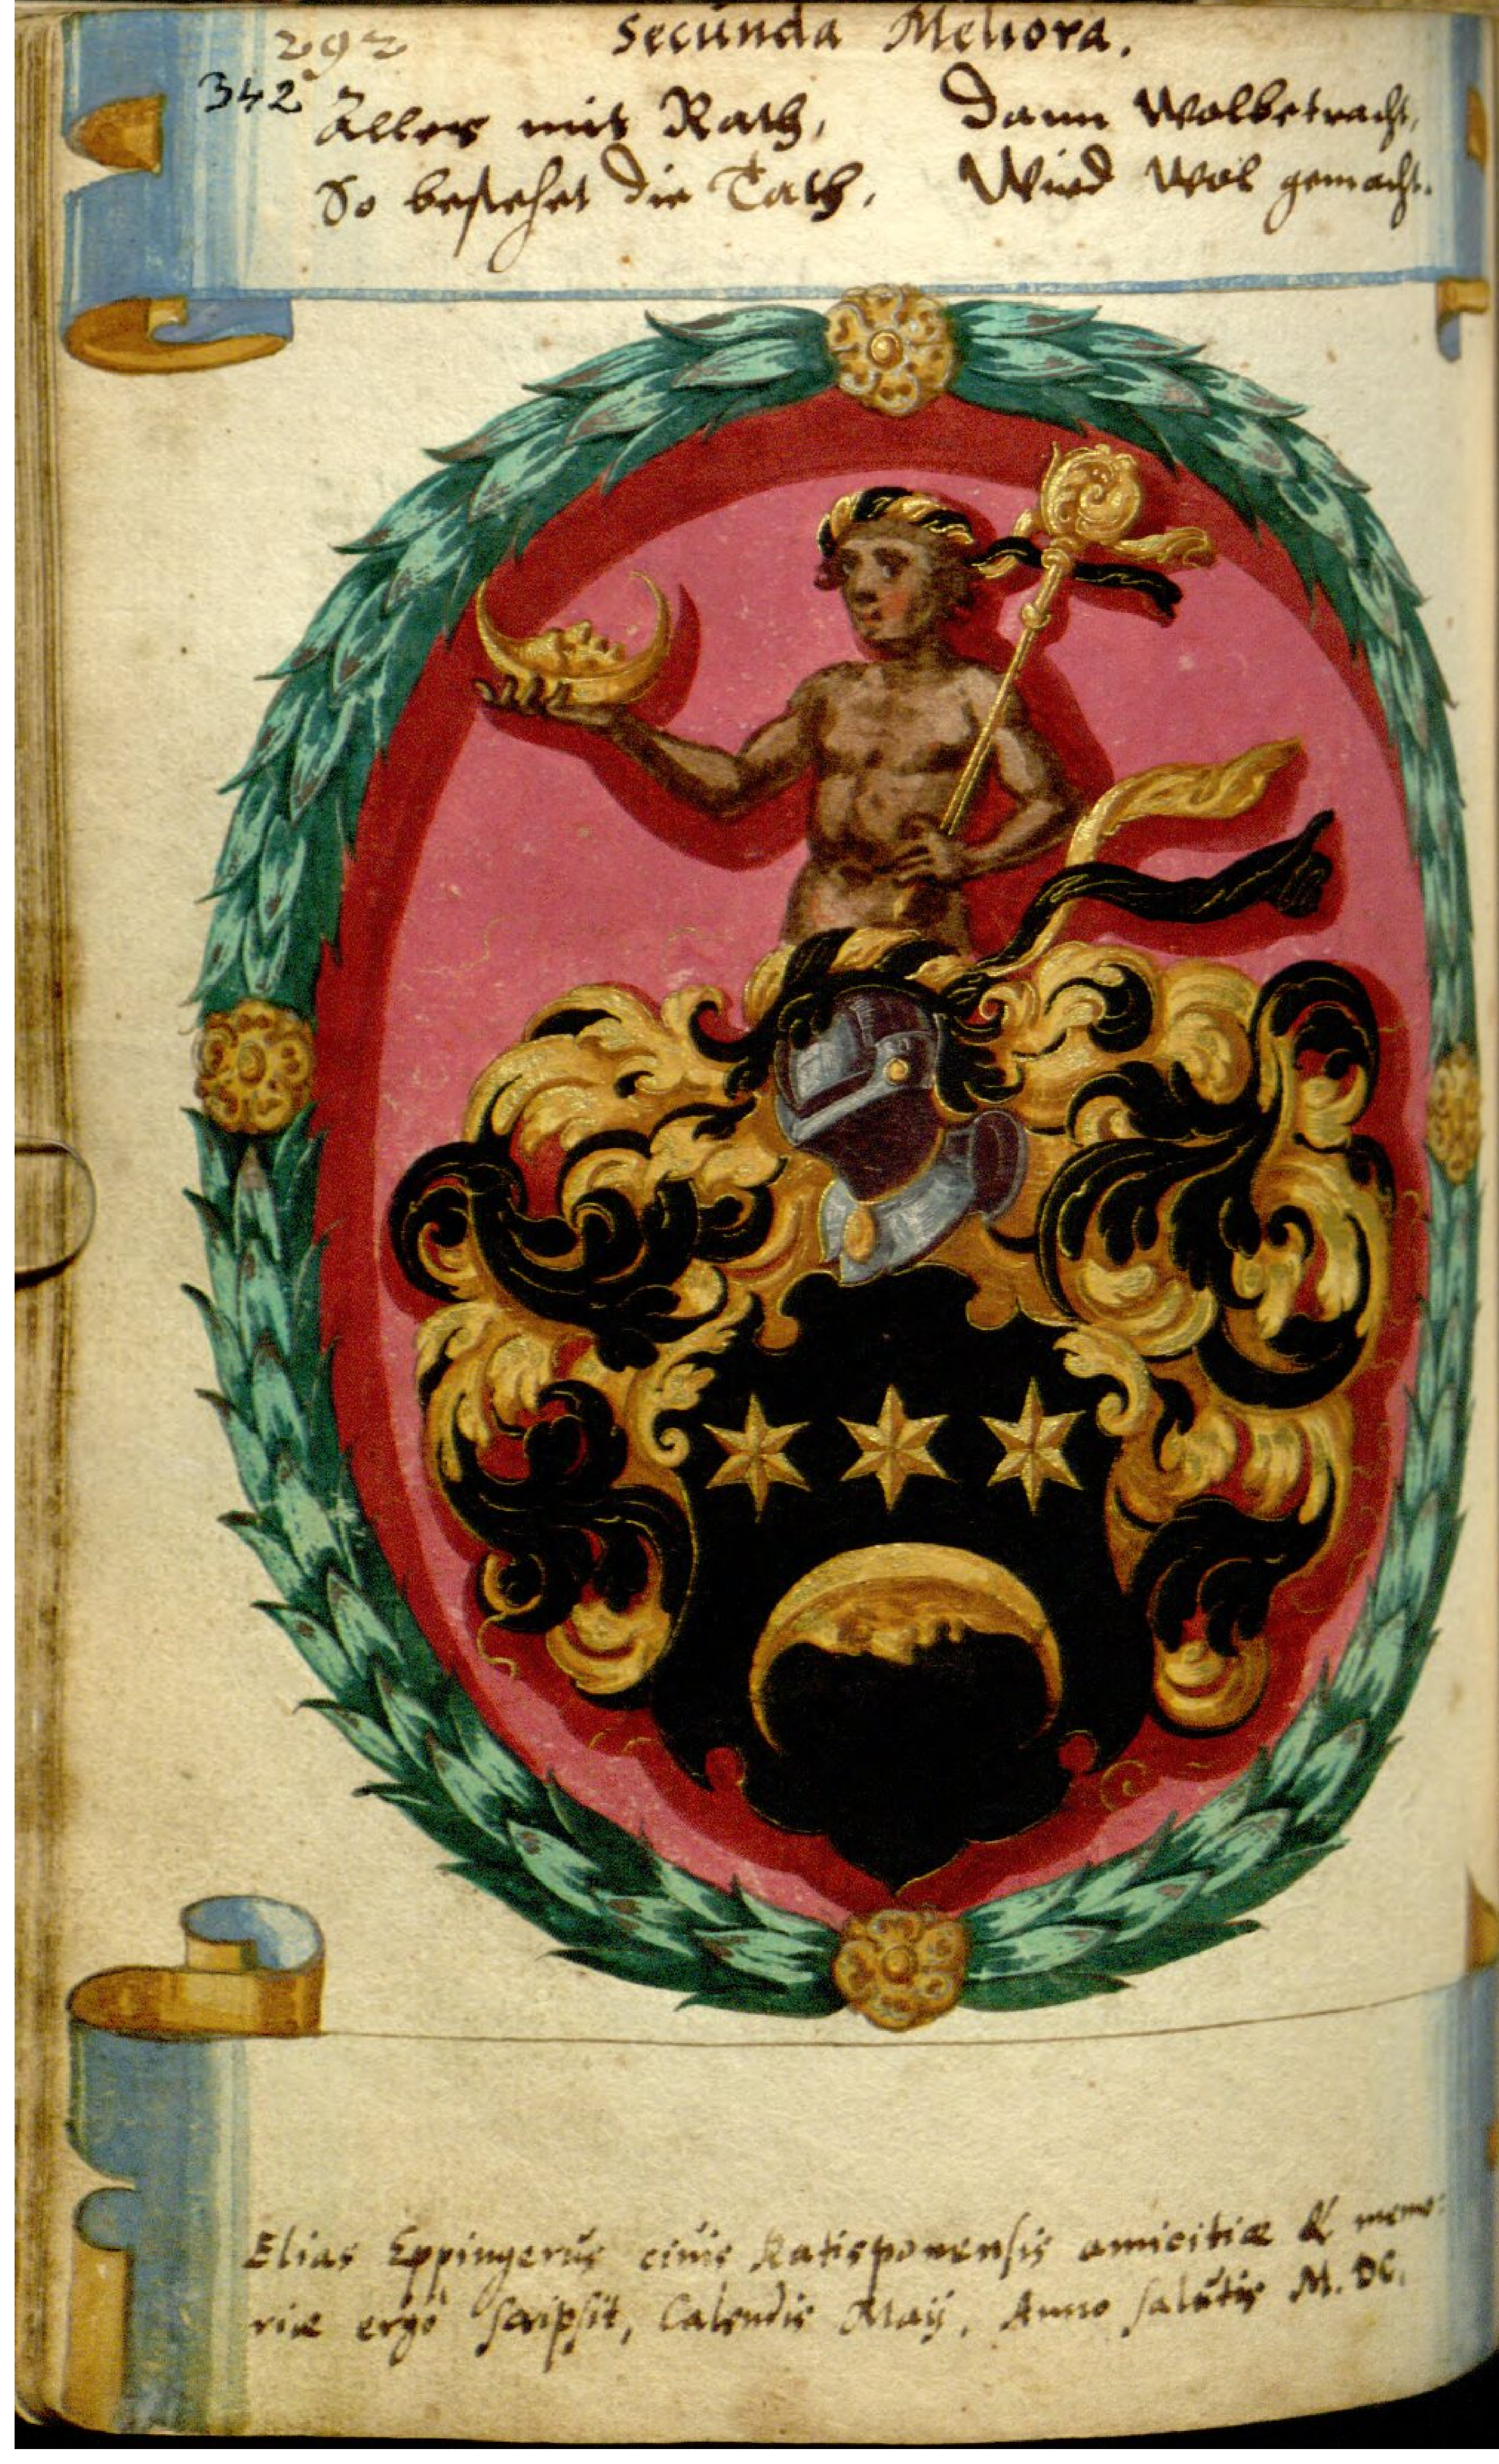 292
Secunda Meliora.
342 Alles mit Rath, Dann Wolbetracht,
So bestehet die Tath, Wird Wol gemacht.
Elias Eppingerus ciuis Ratisponensis amicitiæ & memo:
riæ ergò scripsit, Calendis Maij, Anno salutis M. DC.